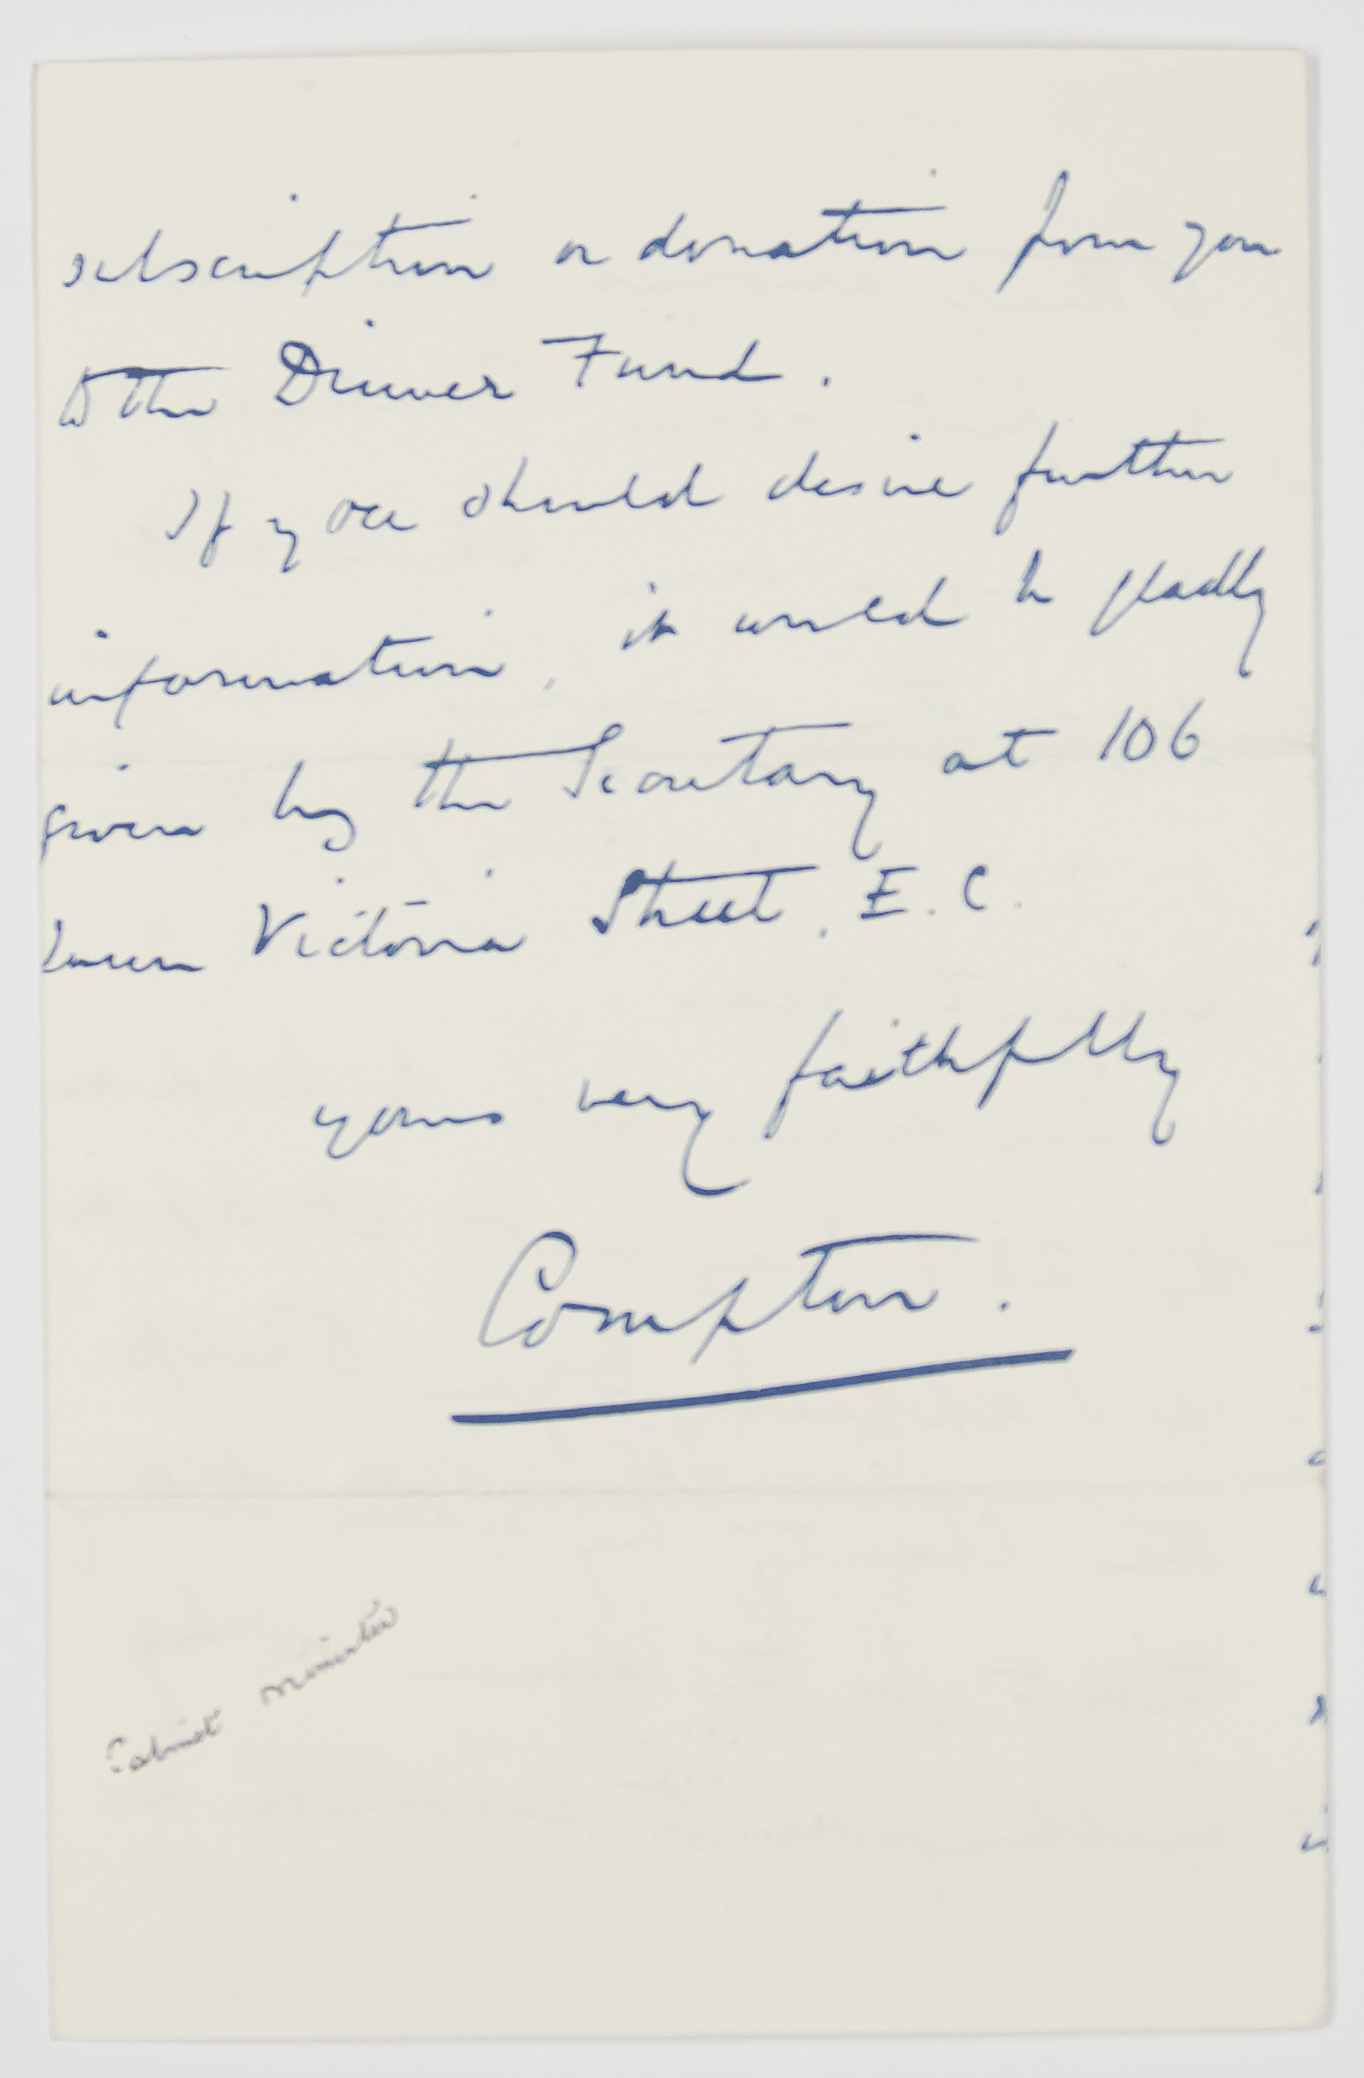 subscription or donation from you
to the Dinner Fund.
If you should desire further
information, it would be gladly
given by the Secretary at 106
Queen Victoria Street, E.C.
yours very faithfully
Compton.
Cabinet Minister